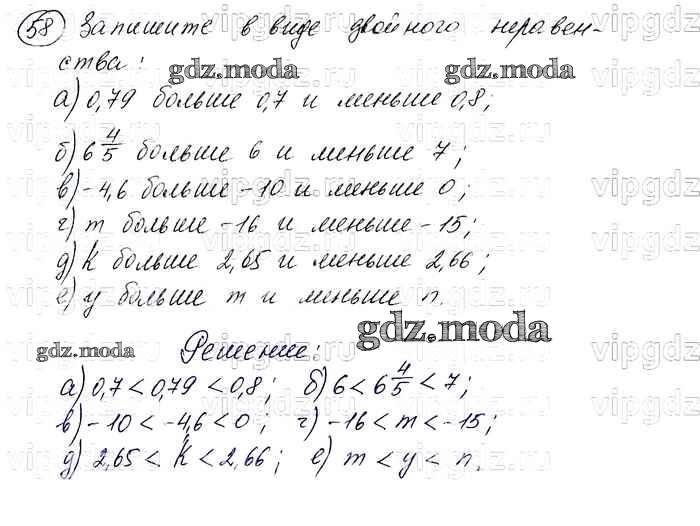 58 Запишите в виде двойного неравен-
ства:
gdz.moda gdz.moda
а) 0,79 больше 0,7 и меньше 0,8;
б) 6 4/5 больше 6 и меньше 7;
в) -4,6 больше -10 и меньше 0;
г) m больше -16 и меньше -15;
д) K больше 2,65 и меньше 2,66;
е) y больше m и меньше n.
gdz.moda
gdz.moda Решение:
а) 0,7 < 0,79 < 0,8; б) 6 < 6 4/5 < 7;
в) -10 < -4,6 < 0; г) -16 < m < -15;
д) 2,65 < K < 2,66; е) m < y < n.
vipgdz